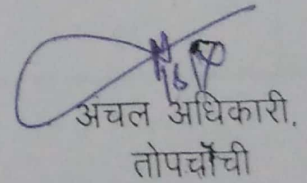 अचल अधिकारी,
तोपचाँची